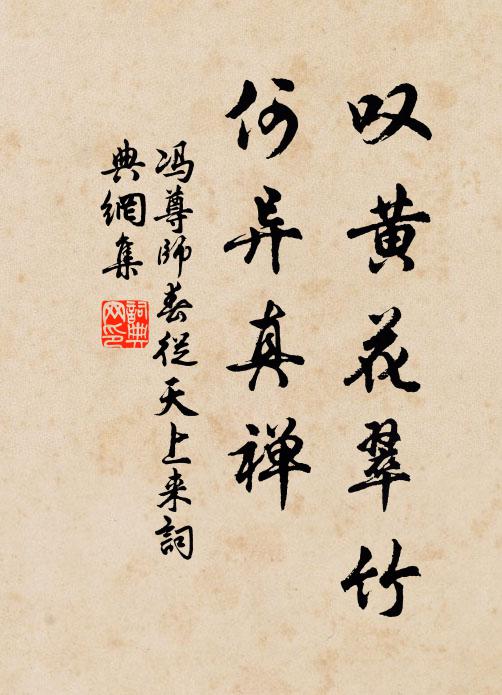 叹黄花翠竹
何异真禅
冯尊师春从天上来词
典網集
詞典
网印